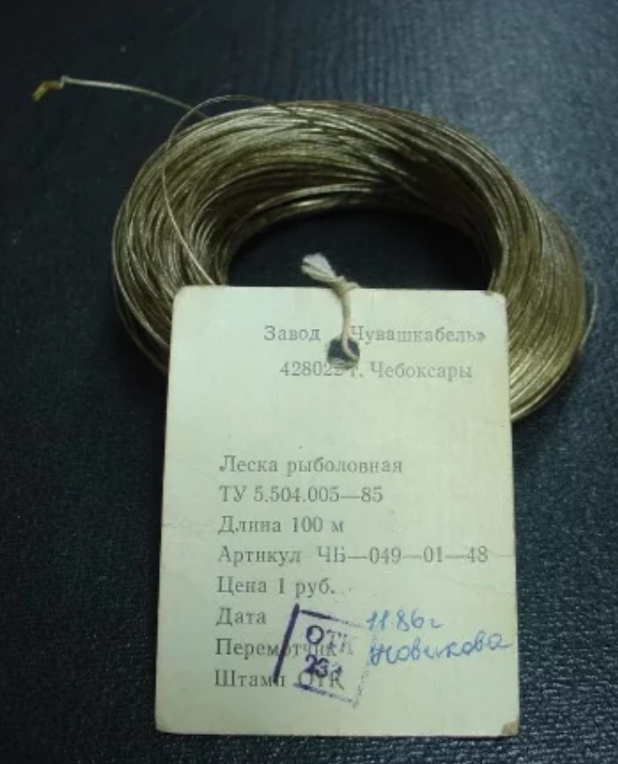 Завод «Чувашкабель»
428022 г. Чебоксары
Леска рыболовная
ТУ 5.504.005—85
Длина 100 м
Артикул ЧБ—049—01—48
Цена 1 руб.
Дата 11.86г
Перемотчик Новикова
Штамп ОТК
ОТК